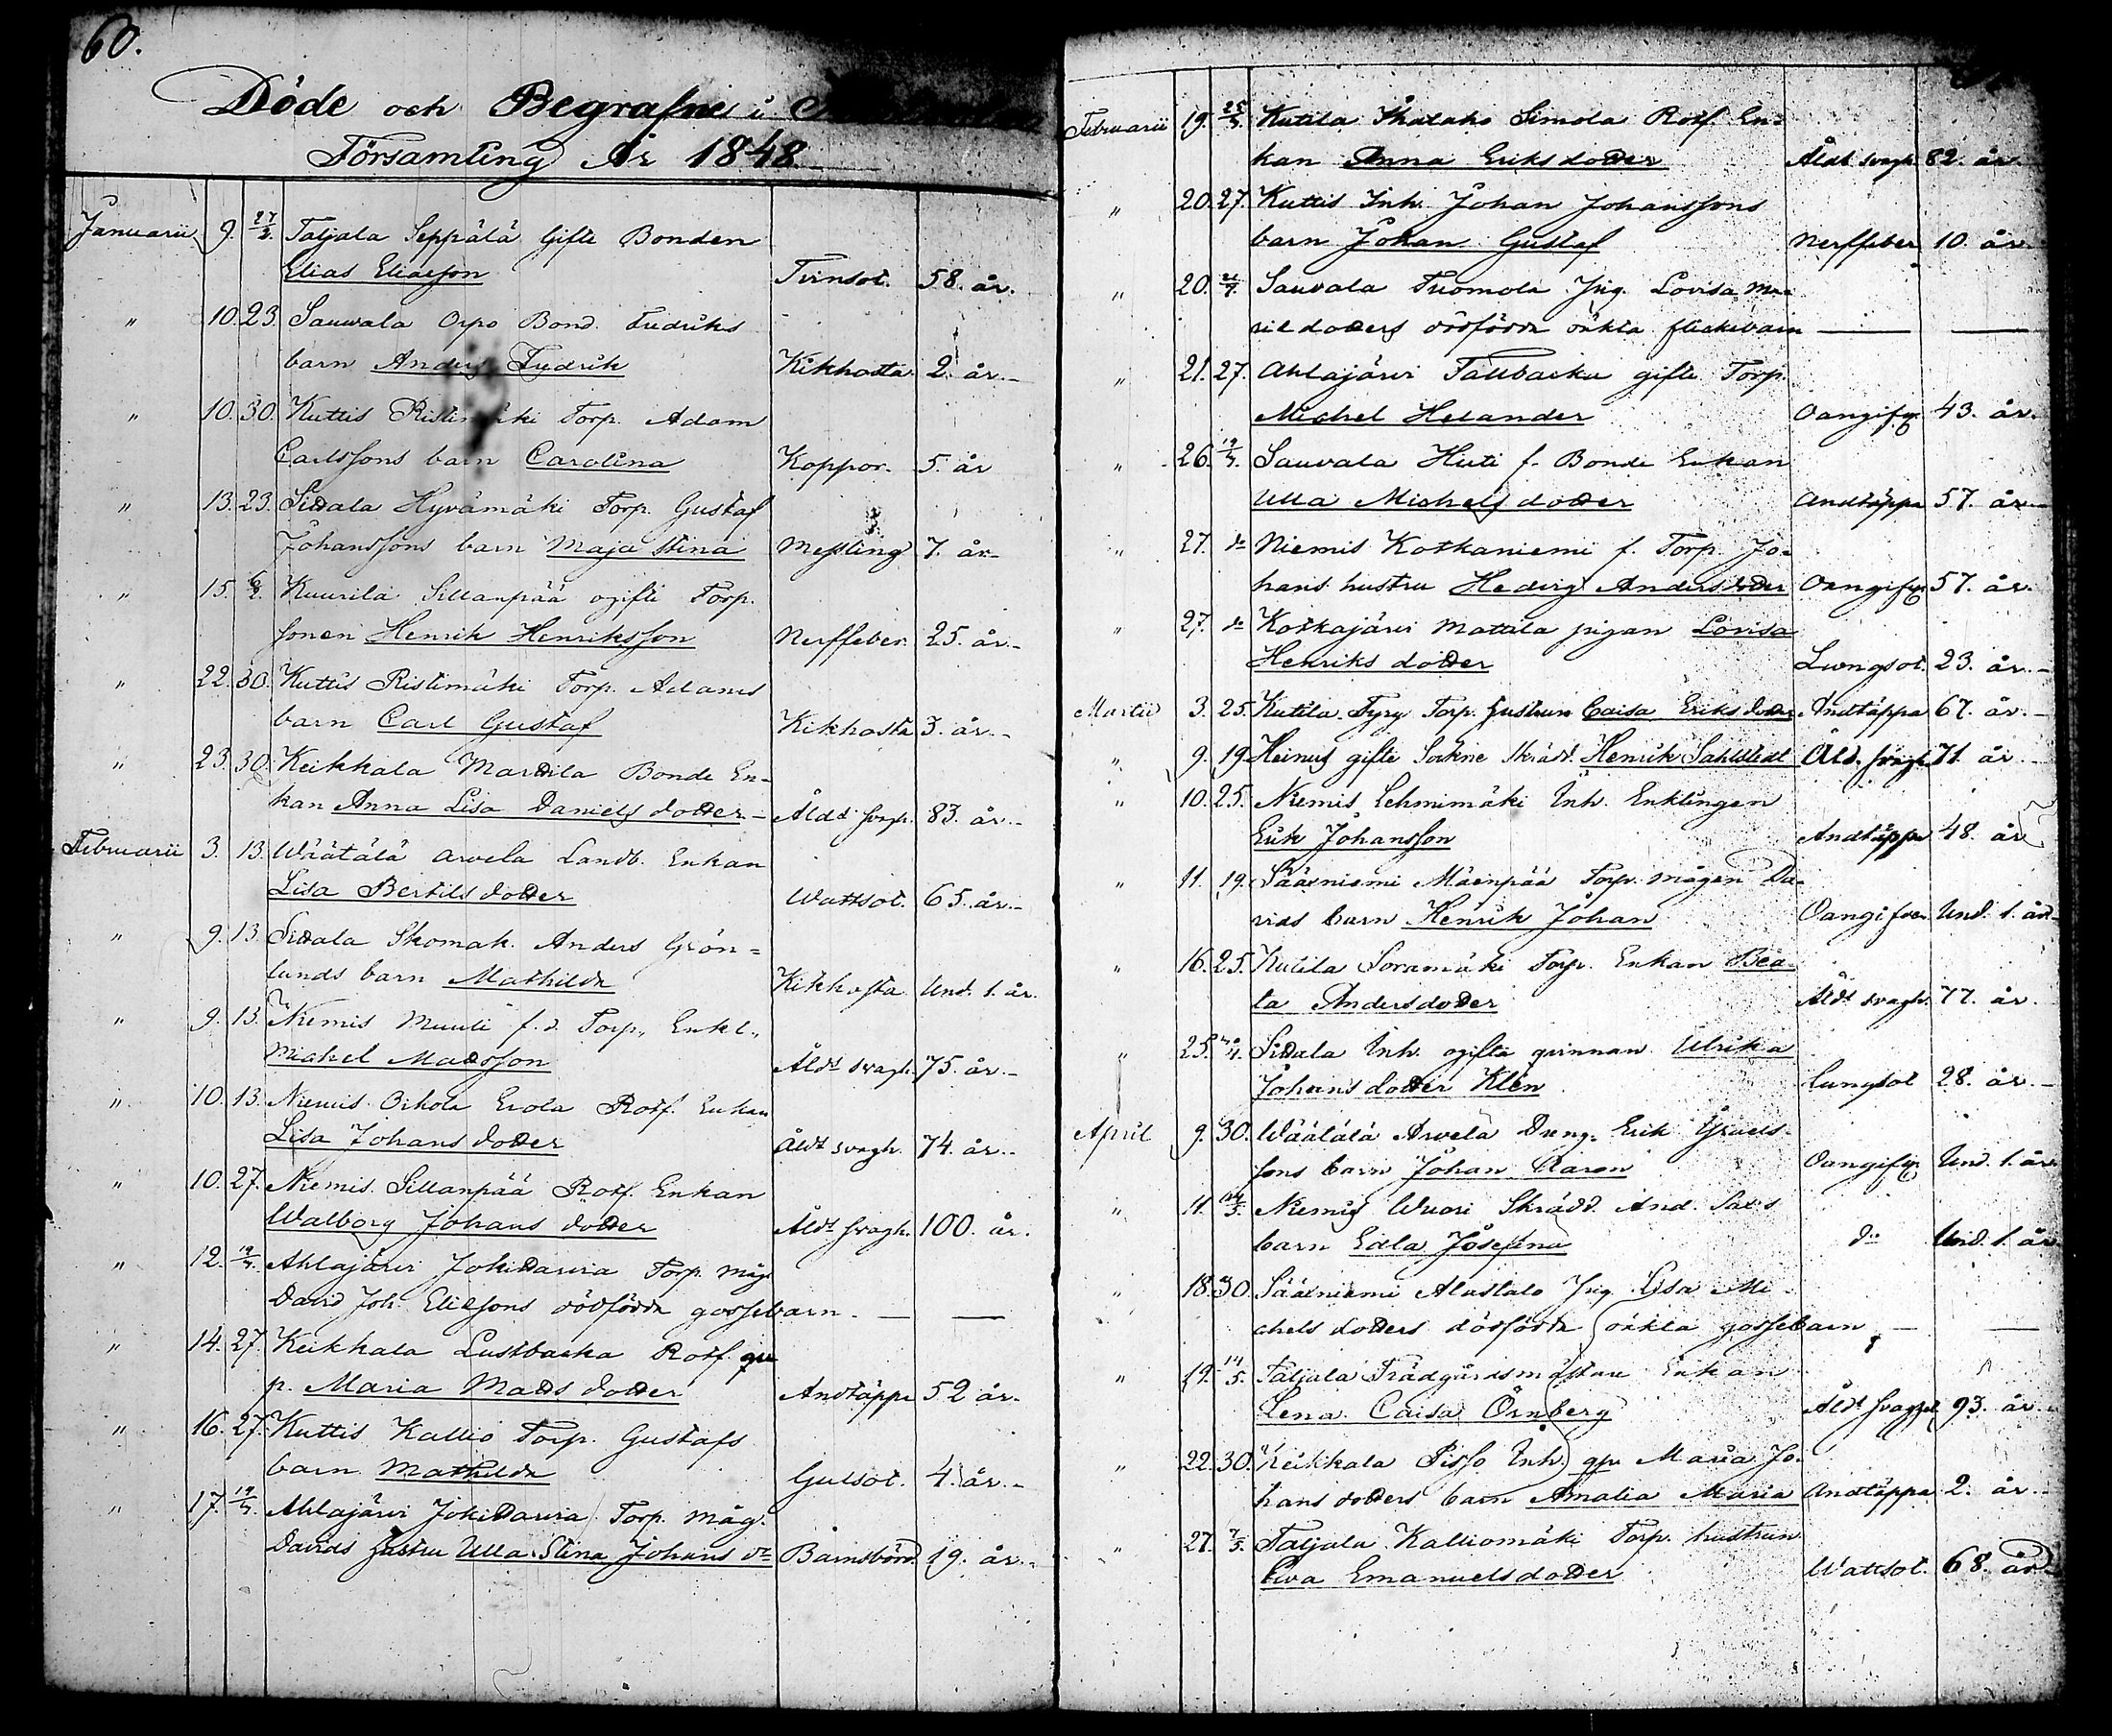 60.
Döde och Begrafne i
Församling År 1848
Januarii 9. 27/2. Taljala Seppälä Gifte Bonden
Elias Eliaeson Tvinsot. 58. år.
" 10. 23. Sauvala Orpo Bond. Fredriks
barn Anders Fredrik Kikhosta 2. år.
" 10. 30. Kuttis Ristimäki Torp. Adam
Carlssons barn Carolina Koppor. 5. år
" 13. 23. Siddala Hyvämäki Torp. Gustaf
Johanssons barn Maja Stina Messling 7. år
" 15. 6/2. Kuurila Sillanpää ogifte Torp.
sonen Henrik Henriksson Nerffeber. 25. år.
" 22. 30. Kuttis Ristimäki Torp. Adams
barn Carl Gustaf Kikhosta 3. år.
" 23. 30. Keikkala Marttila Bonde En-
kan Anna Lisa Daniels dotter Åldd. svagh. 83. år.
Februarii 3. 13. Wäätälä Arvela Landb. Enkan
Lisa Bertils dotter Wattsot. 65. år.
" 9. 13. Siddala Skomak. Anders Grön=
lunds barn Mathilda Kikhosta Und. 1. år.
" 9. 13. Niemis Muuli f.d. Torp. Enkl.
Michel Madsson Åldt svagh. 75. år.
" 10. 13. Niemis Oikola Erola Rotf. Enkan
Lisa Johans dotter Åldt svagh. 74. år.
" 10. 27. Niemis Sillanpää Rotf. Enkan
Walborg Johans dotter Åldt svagh. 100. år.
" 12. 19/3. Ahlajärvi Jokidavia Torp. måg.
David Joh. Eliesons dödfödde gossebarn. — —
" 14. 27. Keikkala Lustbacka Rotf. qv
p. Maria Mads dotter Andtäppa 52 år.
" 16. 27. Kuttis Kallio Torp. Gustafs
barn Mathilda Gulsot. 4. år.
" 17. 19/3. Ahlajärvi Jokidavia Torp. måg.
Davids hustru Ulla Stina Johans dr Barnsbörd. 19. år.
Februarii 19. 25/3. Kutila Simola Rotf. En=
kan Anna Eriks dotter Åldt svagh. 82. år.
" 20. 27. Kuttis Inh. Johan Johanssons
barn Johan Gustaf Nerffeber 10. år
" 20. Sauvala Tuomola Pig. Lovisa Ma-
ts dotters dödfödde oäkta flickebarn — —
" 21. 27. Ahlajärvi Tallbacka gifte Torp.
Michel Helander Oangifven 43. år.
" 26. 19/3. Sauvala Huti f. Bonde Enkan
Ulla Michels dotter Andtäppa 57. år.
" 27. do Niemis Kotkaniemi f. Torp. Jo-
hans hustru Hedvig Andersdotter Oangifven 57. år.
" 27. do Kotkajärvi Mattila pigan Lovisa
Henriks dotter Lungsot. 23. år.
Martii 3. 25. Kutila Tyry Torp. hustrun Caisa Eriks dotter Andtäppa 67. år.
" 9. 19. Heinus gifte Sockne Skrädd. Henrik Sahlstedt Åld. svagh. 71. år.
" 10. 25. Niemis Lehmimäki Inh. Enklingen
Erik Johansson Andtäppa 48. år
" 11. 19. Sääxniemi Mäenpää Torp. mågen Da-
vids barn Henrik Johan Oangifven Und. 1. år
" 16. 25. Kutila Soramäki Torp. Enkan Bea-
ta Andersdotter Åldt svagh. 77. år.
" 25. Siddala Inh. ogifta qvinnan Ulrika
Johans dotter Klen Lungsot 28. år.
April 9. 30. Wäälälä Arvela Dreng. Erik Israels-
sons barn Johan Aaron Oangifven Und. 1. år
" 11. 14/5. Niemis Wuori Skrädd. And. Sax's
barn Edla Josefina do Und. 1. år
" 18. 30. Sääxniemi Alastalo Pig. Lisa Mi-
chels dotters dödfödde oäkta gossebarn — —
" 19. 14/5. Taljala Trädgårdsmästare Enkan
Lena Caisa Örnberg Åldt svaghet 93. år.
" 22. 30. Keikkala Pisso Inh. qv. Maria Jo-
hans dotters barn Amalia Maria Andtäppa 2. år.
" 27. 7/5. Taljala Kalliomäki Torp. hustrun
Ewa Emanuels dotter Wattsot. 68. år